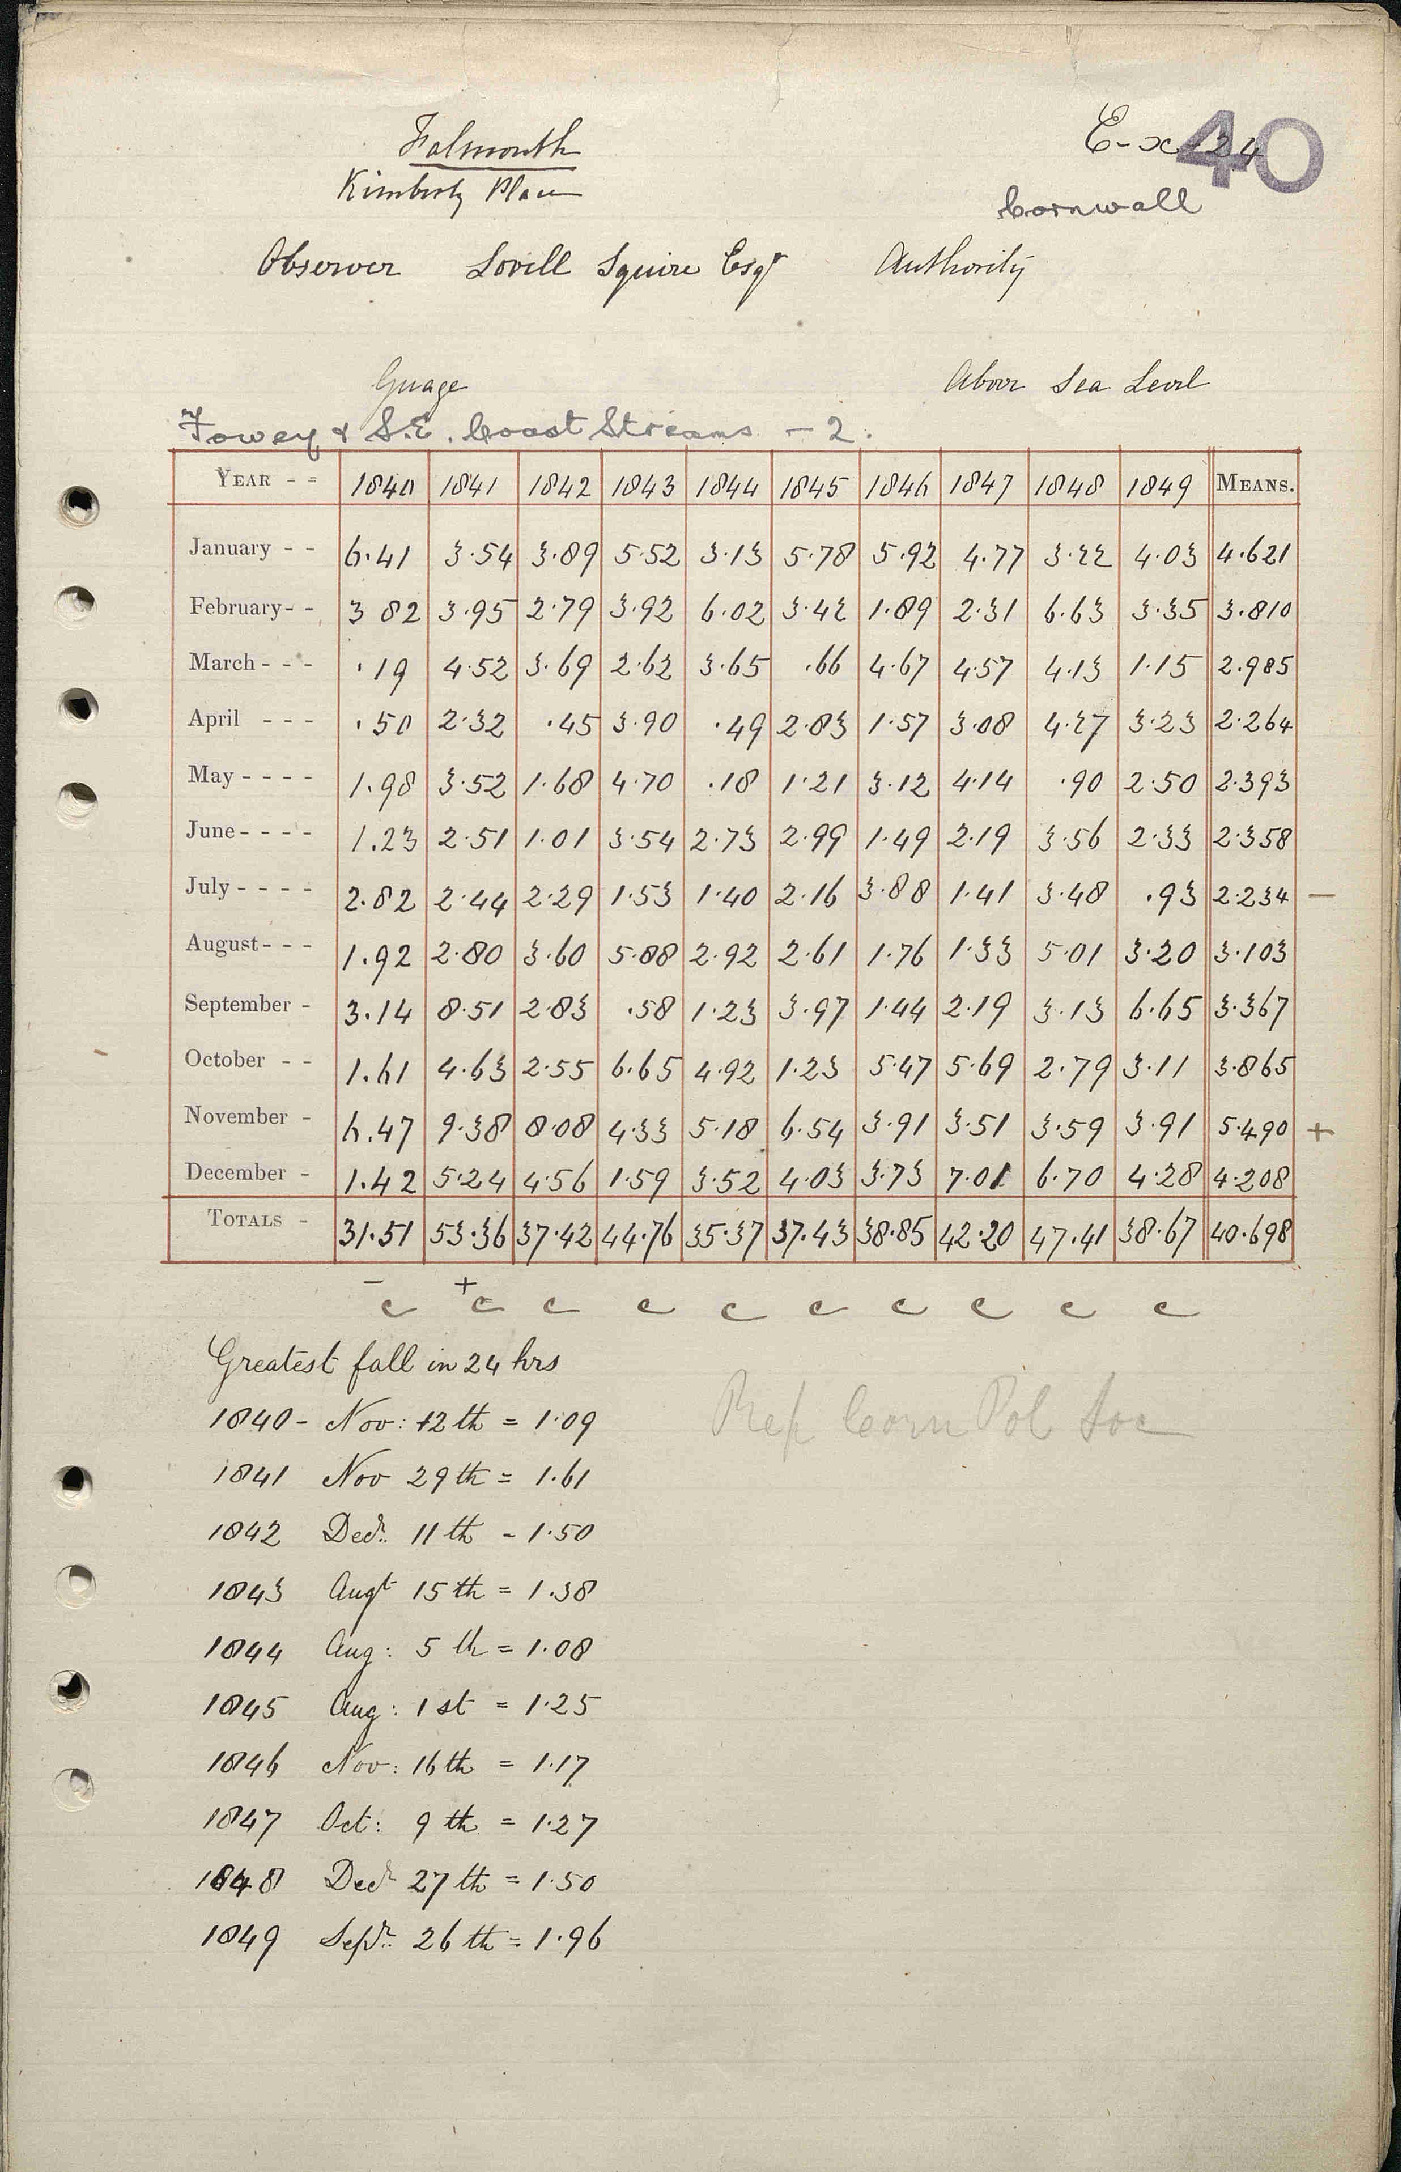 Falmouth
Kimberly Place
E-x 124
40
Cornwall
Observer Lovell Squire Esqr Authority
Guage Above Sea Level
Fowey & S.E. Coast Streams - 2.
YEAR - - 1840 1841 1842 1843 1844 1845 1846 1847 1848 1849 MEANS.
January - - 6.41 3.54 3.89 5.52 3.13 5.78 5.92 4.77 3.22 4.03 4.621
February - - 3 82 3.95 2.79 3.92 6.02 3.42 1.89 2.31 6.63 3.35 3.810
March - - - .19 4.52 3.69 2.62 3.65 .66 4.67 4.57 4.13 1.15 2.985
April - - - .50 2.32 .45 3.90 .49 2.83 1.57 3.08 4.27 3.23 2.264
May - - - - 1.98 3.52 1.68 4.70 .18 1.21 3.12 4.14 .90 2.50 2.393
June - - - - 1.23 2.51 1.01 3.54 2.73 2.99 1.49 2.19 3.56 2.33 2.358
July - - - - 2.82 2.44 2.29 1.53 1.40 2.16 3.88 1.41 3.48 .93 2.234 -
August - - - 1.92 2.80 3.60 5.88 2.92 2.61 1.76 1.33 5.01 3.20 3.103
September - 3.14 8.51 2.83 .58 1.23 3.97 1.44 2.19 3.13 6.65 3.367
October - - 1.61 4.63 2.55 6.65 4.92 1.23 5.47 5.69 2.79 3.11 3.865
November - 6.47 9.38 8.08 4.33 5.18 6.54 3.91 3.51 3.59 3.91 5.490 +
December - 1.42 5.24 4.56 1.59 3.52 4.03 3.73 7.01 6.70 4.28 4.208
TOTALS - 31.51 53.36 37.42 44.76 35.37 37.43 38.85 42.20 47.41 38.67 40.698
- +
c c c c c c c c c c
Greatest fall in 24 hrs
1840 - Nov: 12th = 1.09
Rep Corn Pol Soc
1841 Nov 29th = 1.61
1842 Decr. 11th - 1.50
1843 Augt 15th = 1.38
1844 Aug: 5th = 1.08
1845 Aug: 1st = 1.25
1846 Nov: 16th = 1.17
1847 Oct: 9th = 1.27
1848 Decr 27th = 1.50
1849 Sepr. 26th = 1.96